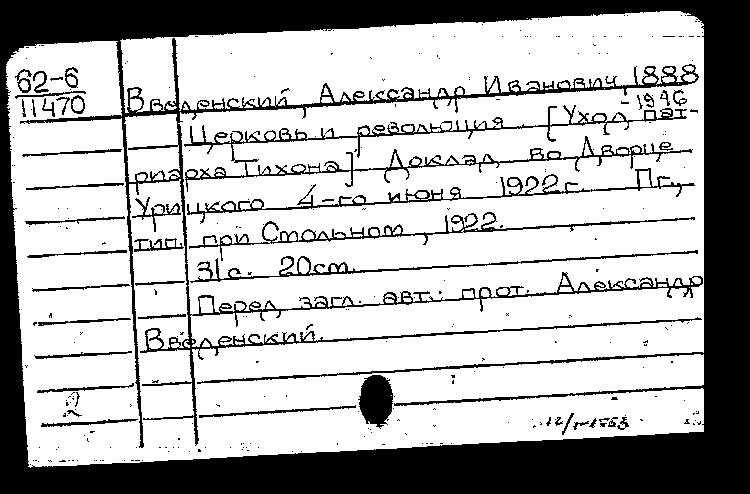 62-6
11470
Введенский, Александр Иванович, 1888
-1946
Церковь и революция. [Уход пат-
риарха Тихона] Доклад во Дворце
Урицкого 4-го июня 1922г. Пг.,
тип. при Смольном, 1922.
31с. 20см.
Перед загл. авт.: прот. Александр
Введенский.
2